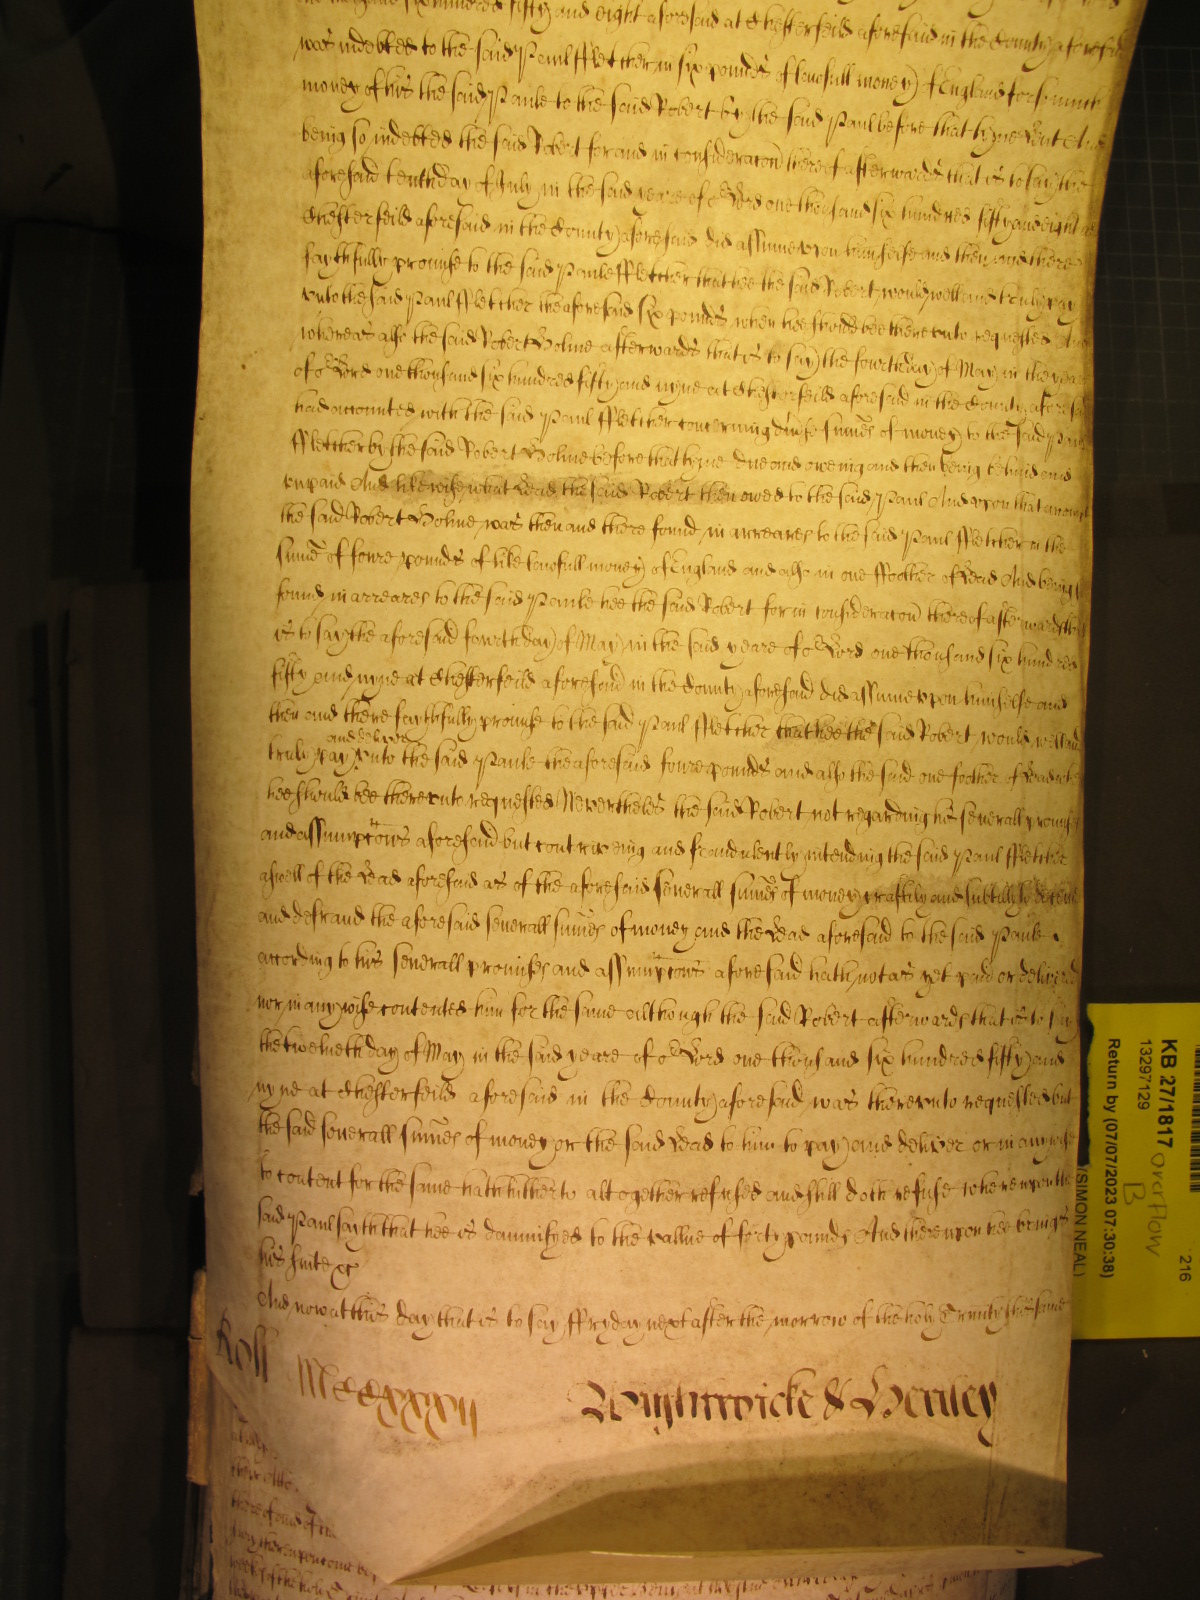 one thousand six hundred fifty and eight aforesaid at Chesterfeild aforesaid in the County aforesaid
was indebted to the said Paul ffletcher in six pounds of lawfull money of England for so much
money of his the said Paule to the said Robert by the said Paul before that tyme lent And
being so indebted the said Robert for and in consideracon thereof afterwards that is to say the
aforesaid tenth day of July in the said yeare of or Lord one thousand six hundred fifty and eight at
Chesterfeild aforesaid in the County aforesaid did assume upon himselfe and then and there
faythfully promise to the said Paule ffletcher that hee the said Robert would well and truly pay
unto the said Paul ffletcher the aforesaid six pounds when hee should bee thereunto requested And
whereas also the said Robert Holme afterwards that is to say the fourth day of May in the yeare
of or Lord one thousand six hundred fifty and nyne at Chesterfeild aforesaid in the County aforesaid
had accounted with the said Paul ffletcher concerning divse summes of money to the said Paul
ffletcher by the said Robert Holme before that tyme due and oweing and then being behind and
unpaid And likewise what Lead the said Robert then owed to the said Paul And upon that account
the said Robert Holme was then and there found in arreares to the said Paul ffletcher in the
sume of foure pounds of like lawfull money of England and also in one ffother of Lead And being
found in arreares to the said Paule hee the said Robert for in consideracon thereof afterwards that
is to say the aforesaid fourth day of May in the said yeare of or Lord one thousand six hundred
fifty and nyne at Chesterfeild aforesaid in the County aforesaid did assume upon himselfe and
then and there faythfully promise to the said Paul ffletcher that hee the said Robert would well and
truly pay and deliver unto the said Paule the aforesaid foure pounds and also the said one fother of Lead when
hee should bee thereunto requested Neverthelesse the said Robert not regarding his severall promises
and assumpcons aforesaid but contriveing and fraudulently intending the said Paul ffletcher
aswell of the Lead aforesaid as of the aforesaid severall sumes of money craftily and subtilly to deceive
and defraud the aforesaid severall sumes of money and the Lead aforesaid to the said Paule
according to his severall promises and assumpcons aforesaid hath not as yet paid or delivered
nor in any wise contented him for the same although the said Robert afterwards that is to say
the twelueth day of May in the said yeare of or Lord one thousand six hundred fifty and
nyne at Chesterfeild aforesaid in the County aforesaid was thereunto requested but
the said severall sumes of money or the said Lead to him to pay and deliver or in any wise
to content for the same hath hitherto altogether refused and still doth refuse whereupon the
said Paul sayth that hee is damnifyed to the vallue of forty pounds And thereupon hee brings
his suite &c
And now at this day that is to say ffryday next after the morrow of the holy Trinity this same
Roll MCCxxxxii Wightwicke & Henley
KB 27/1817 overflow B
13297129
216
Return by (07/07/2023 07:30:38)
(SIMON NEAL)